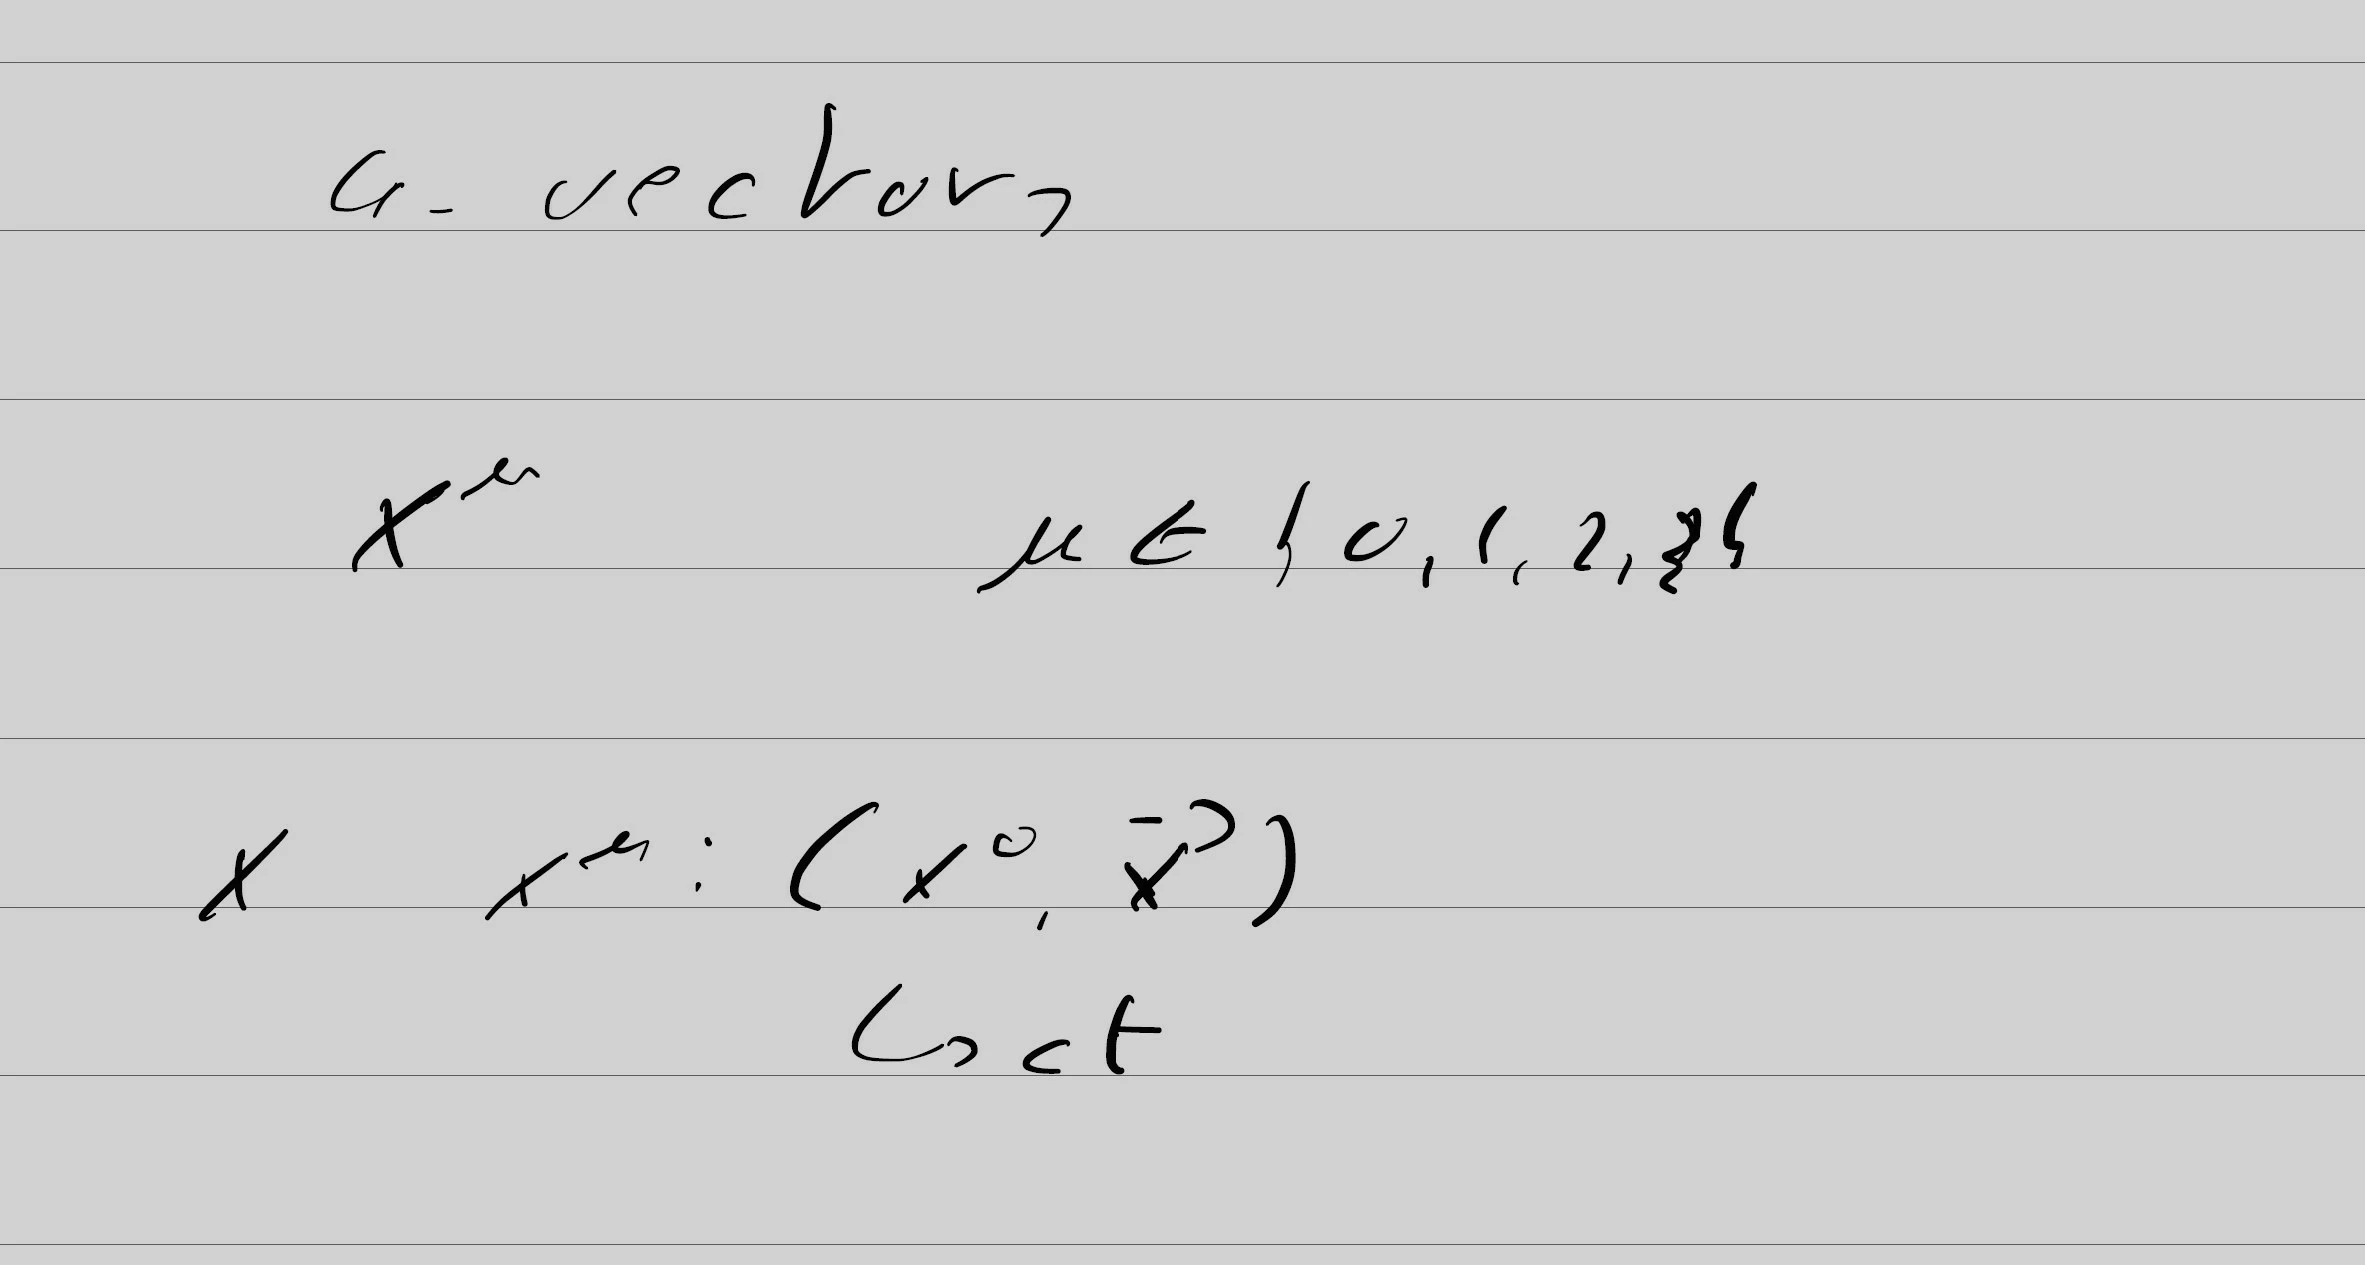 4-vectors
x^μ μ ∈ {0, 1, 2, 3}
x x^μ : (x^0, \vec{x})
↳ ct